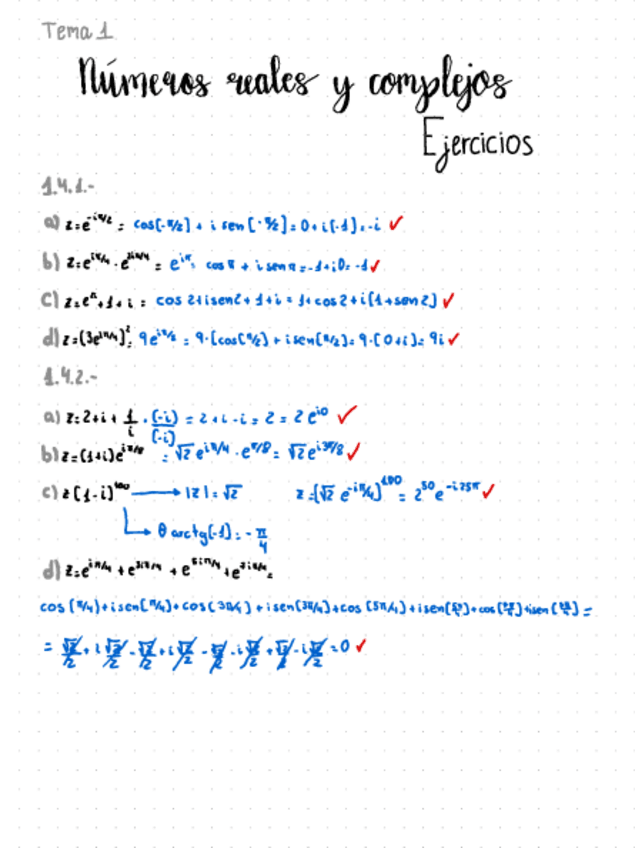 Tema 1
Números reales y complejos
Ejercicios
1.4.1.-
a) z=e^-iπ/2 = cos(-π/2) + i sen(-π/2) = 0+i(-1) = -i ✓
b) z=e^iπ/4 · e^3iπ/4 = e^iπ = cos π + i sen π = -1+i0 = -1 ✓
c) z=e^ + 1 + i = cos 2+isen2 + 1+i = 1+cos2+i(1+sen2) ✓
d) z=(3e^iπ/4)^2 = 9e^iπ/2 = 9·(cos(π/2) + isen(π/2) = 9·(0+i) = 9i ✓
1.4.2.-
a) z=2+i+ 1/i · (-i)/(-i) = 2+i-i = 2 = 2e^i0 ✓
b) z=(1+i)e^iπ/8 = √2 e^iπ/4 · e^π/8 = √2 e^i3π/8 ✓
c) z(1-i)^100 → |z| = √2 z=(√2 e^-iπ/4)^100 = 2^50 e^-i25π ✓
θ arctg(-1) = -π/4
d) z=e^iπ/4 + e^3iπ/4 + e^5iπ/4 + e^7iπ/4 =
cos(π/4)+isen(π/4)+cos(3π/4)+isen(3π/4)+cos(5π/4)+isen(5π/4)+cos(7π/4)+isen(7π/4) =
= √2/2 + i √2/2 - √2/2 + i √2/2 - √2/2 - i √2/2 + √2/2 - i √2/2 = 0 ✓